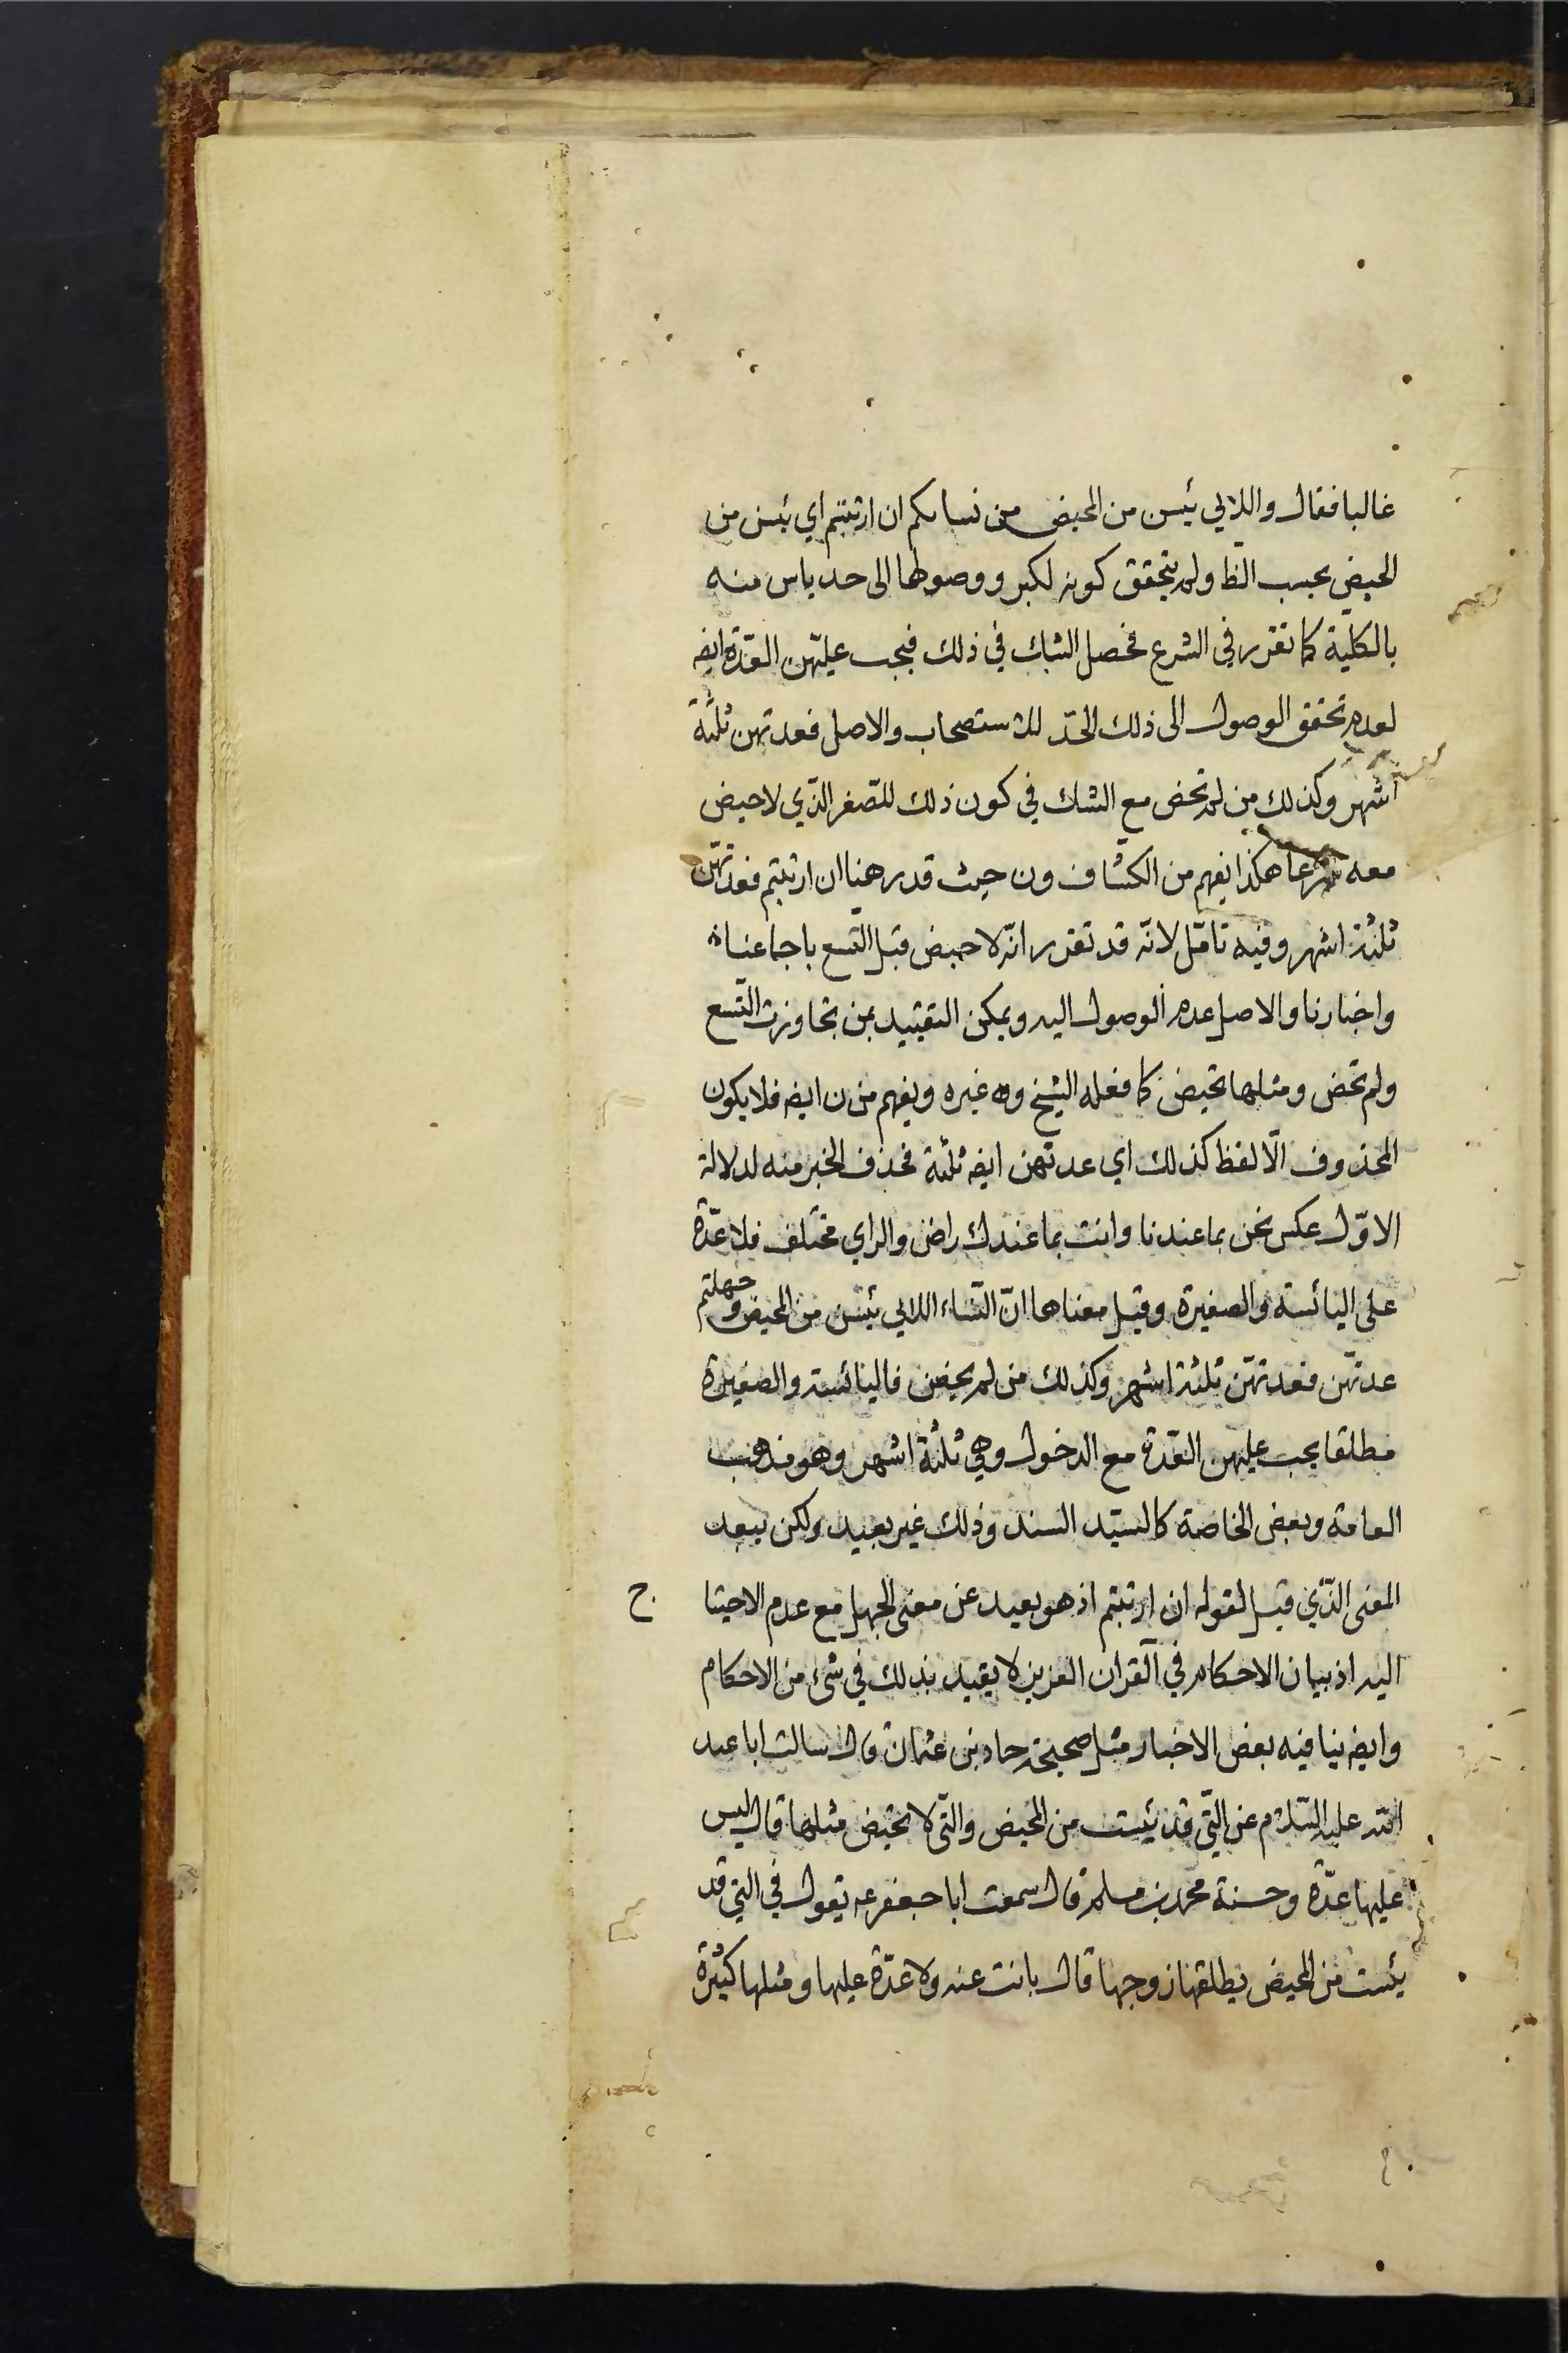 غالبا فقال واللائي يئسن من المحيض من نسائكم ان ارتبتم اي يئسن من
الحيض بحسب الظا ولم يتحقق كونه لكبر ووصولها الى حد ياس منه
بالكلية كما تقرر في الشرع فحصل الشك في ذلك فيجب عليهن العدة ايضه
لعدم تحقق الوصول الى ذلك الحد للاستصحاب والاصل فعدتهن ثلثة
اشهر وكذلك من لم تحض مع الشك في كون ذلك للصغر الذي لا حيض
معه شرعا هكذا يفهم من الكشاف ون حيث قدر هنا ان ارتبتم فعدتهن
ثلثة اشهر وفيه تامل لانه قد تقرر انه لا حيض قبل التسع باجماعنا
واخبارنا والاصل عدم الوصول اليه ويمكن التقييد بمن تجاوزت التسع
ولم تحض ومثلها تحيض كما فعله الشيخ وه غيره ويفهم من ن ايضه فلا يكون
المحذوف الا لفظ كذلك اي عدتهن ايضه ثلثة فحذف الخبر منه لدلالة
الاول عكس نحن بما عندنا وانت بما عندك راض والراي مختلف فلا عدة
على اليائسة والصغيرة وقيل معناها ان النساء اللائي يئسن من المحيض وجهلتم
عدتهن فعدتهن ثلثة اشهر وكذلك من لم يحضن فاليائسة والصغيرة
مطلقا يجب عليهن العدة مع الدخول وهي ثلثة اشهر وهو مذهب
العامة وبعض الخاصة كالسيد السند وذلك غير بعيد ولكن يبعد
المعنى الذي قيل لقوله ان ارتبتم اذ هو بعيد عن معنى الجهل مع عدم الاحتيا ج
اليه اذ بيان الاحكام في القران العزيز لا يقيد بذلك في شئ من الاحكام
وايضه ينافيه بعض الاخبار مثل صحيحة حماد بن عثمان قال سالت ابا عبد
الله عليه السلام عن التي قد يئست من المحيض والتي لا تحيض مثلها قال ليس
عليها عدة وحسنة محمد بن مسلم قال سمعت ابا جعفر عه يقول في التي قد
يئست من المحيض يطلقها زوجها قال بانت عنه ولا عدة عليها ومثلها كثيرة